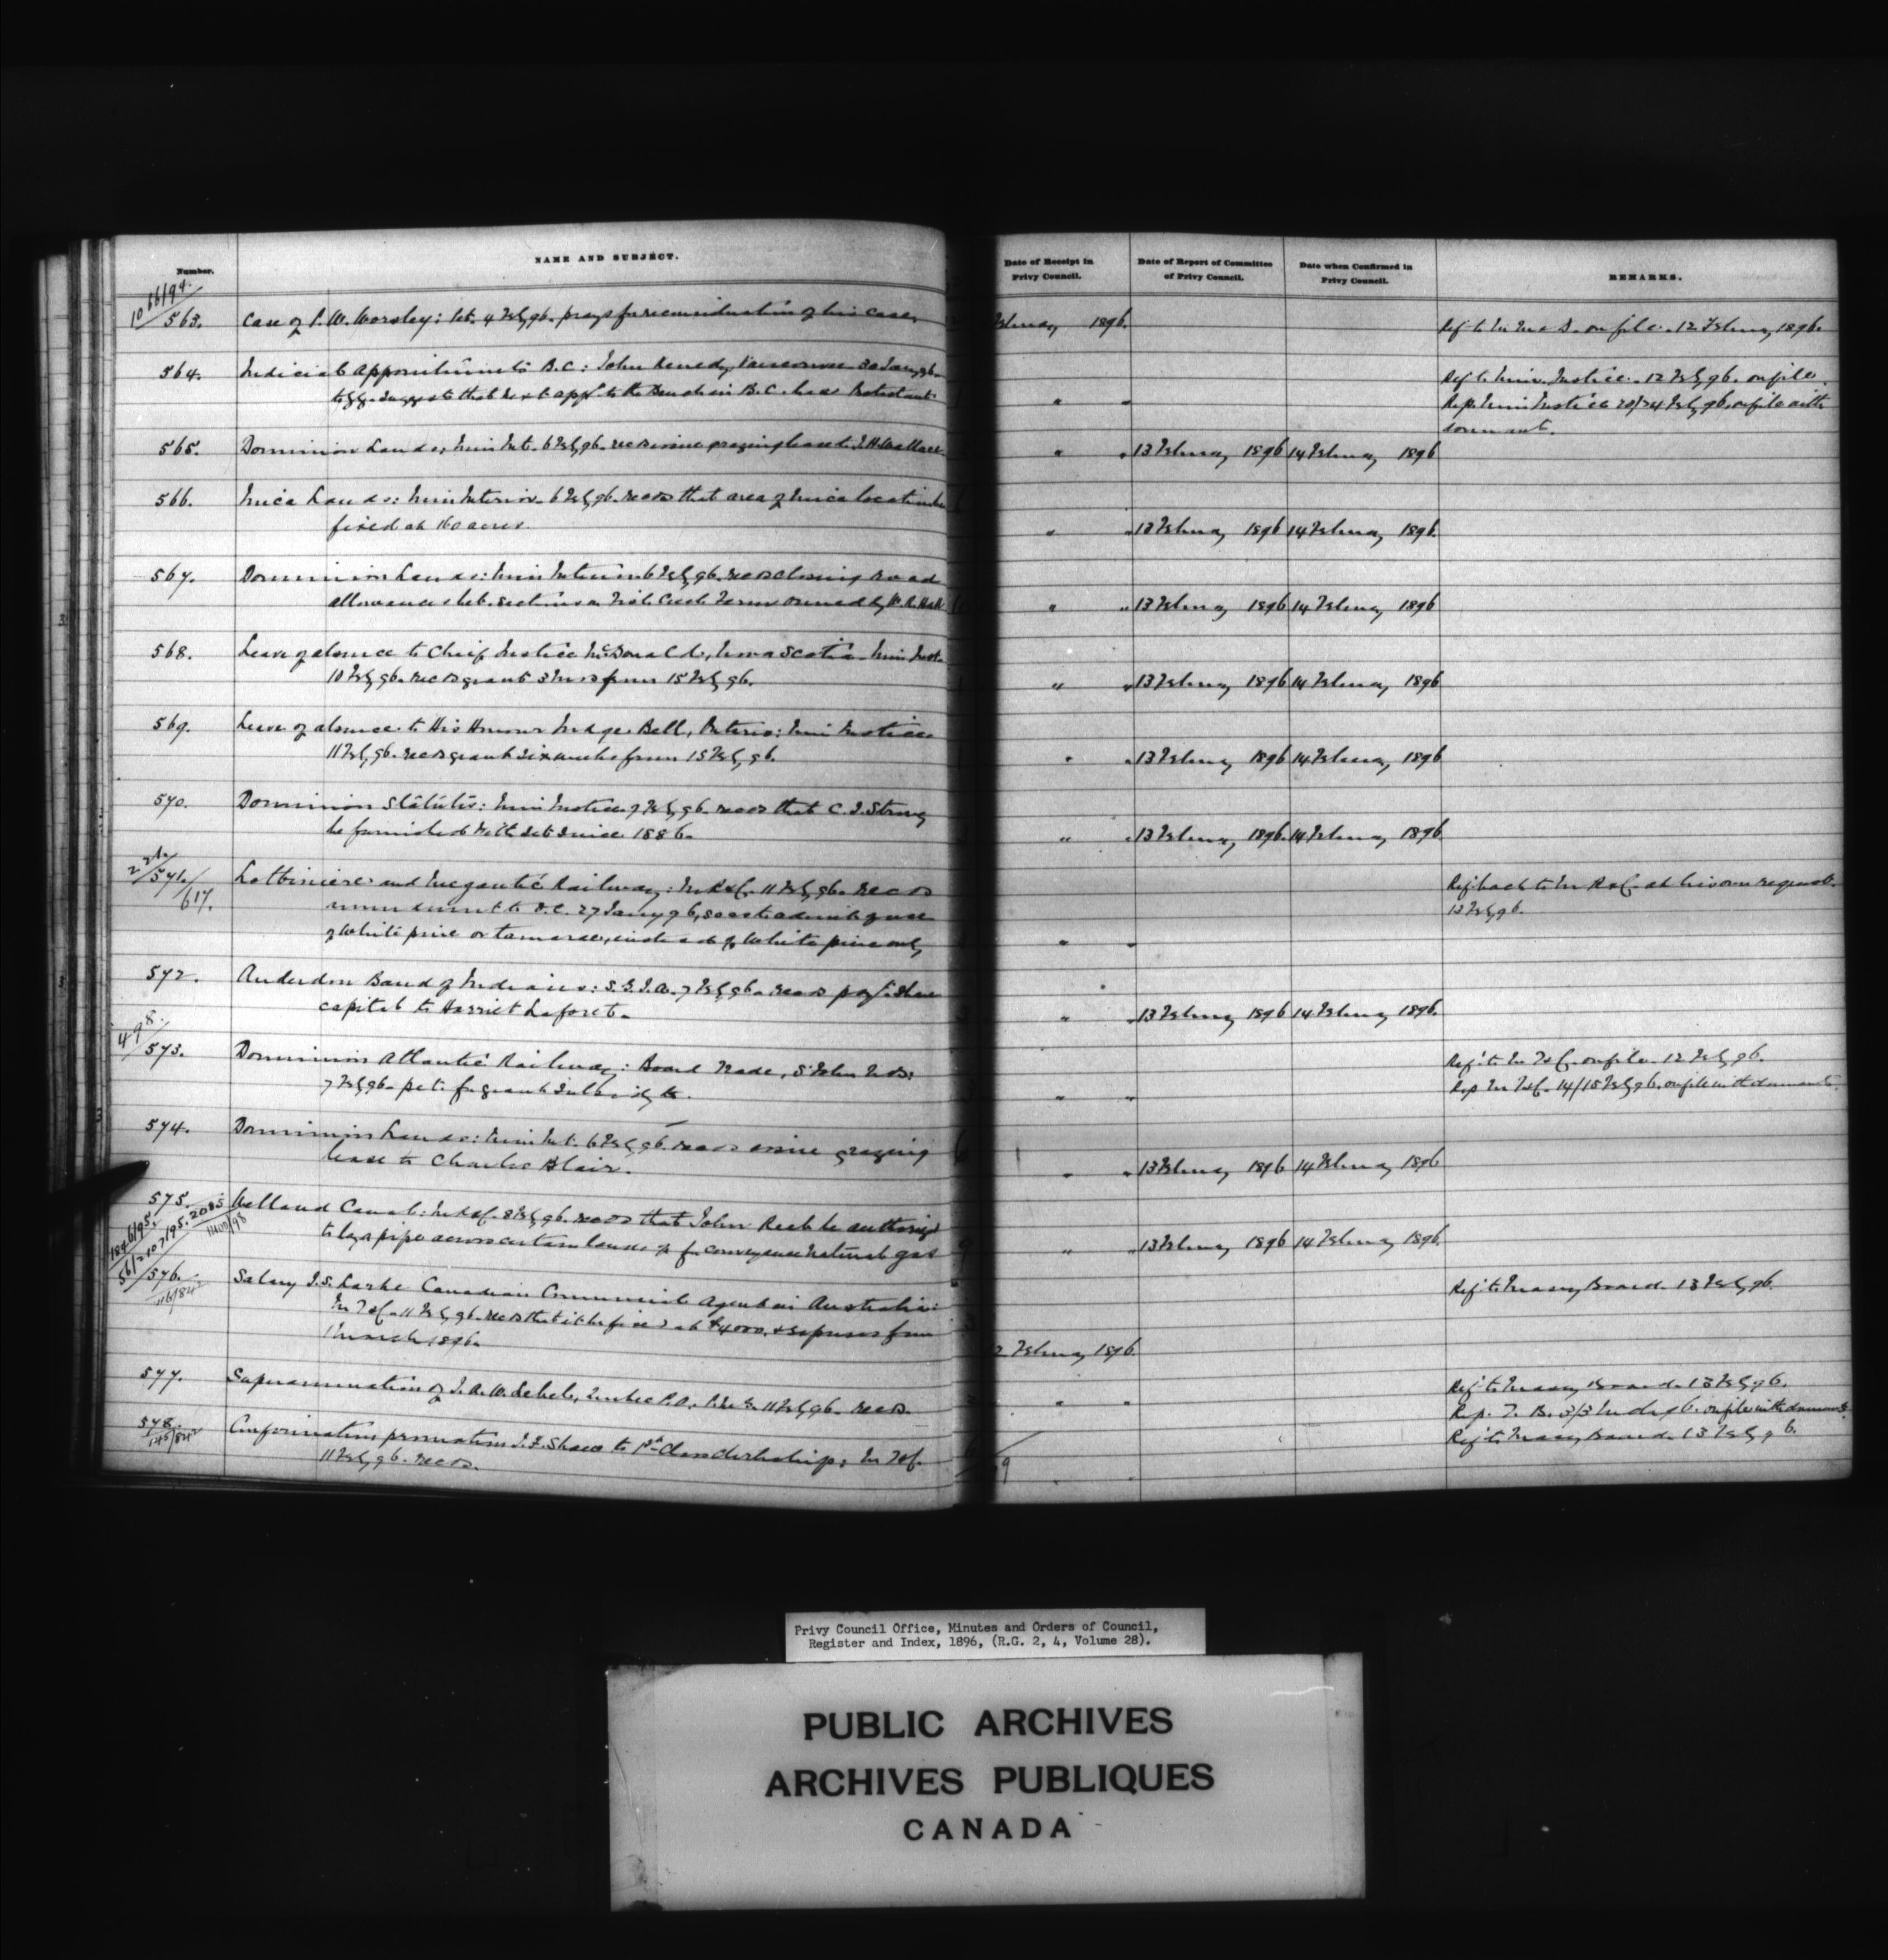 Number.
NAME AND SUBJECT.
Date of Receipt in Privy Council.
Date of Report of Committee of Privy Council.
Date when Confirmed in Privy Council.
REMARKS.
1066/94.
563. Case of P. W. Worsley: let. 4 Feby 96. prays for reconsideration of his case.
February 1896.
Ref. to on file. 12 February 1896.
564. Judicial appointments B.C.: John Vancouver 30 Jany 96.
to suggests that next appt. to the Bench in B.C. be a Protestant.
" "
Ref. to Min. Justice. 12 Feby 96. on file.
Rep. Min Justice 20/24 Feby 96. on file with
dormant.
565. Dominion Lands: Min Int. 6 Feby 96. recds issue grazing lease to J. H. Wallace.
" " 13 February 1896 14 February 1896
566. Mica Lands: Min Interior 6 Feby 96. recds that area of mica location be
fixed at 160 acres.
" " 13 February 1896 14 February 1896.
567. Dominion Lands: Min Interior 6 Feby 96. recds closing road
allowances bet. sections in Fish Creek Farm owned by W. R. Hull
" " 13 February 1896 14 February 1896
568. Leave of absence to Chief Justice McDonald, Nova Scotia. Min Just.
10 Feby 96. recds grant 3 mos from 15 Feby 96.
" " 13 February 1896 14 February 1896
569. Leave of absence to His Honour Judge Bell, Ontario: Min Justice
11 Feby 96. recds grant six weeks from 15 Feby 96.
" " 13 February 1896 14 February 1896
570. Dominion Statutes: Min Justice 7 Feby 96. recds that C. J. Strong
be furnished with set since 1886.
" " 13 February 1896. 14 February 1896
571.
617.
Lotbiniere and Megantic Railway: M. R & C. 11 Feby 96. recds
amendment to O.C. 27 Jany 96, so as to admit of use
of white pine or tamarac, instead of white pine only
" "
Ref. back to M. R & C. at his own request.
13 Feby 96.
572. Anderdon Band of Indians: S.G.I.A. 7 Feby 96. recds payt. share
capital to Harriet Laforet.
" " 13 February 1896 14 February 1896.
498.
573. Dominion Atlantic Railway: Board Trade, St John N.B:
7 Feby 96. pet. for grant subsidy to.
" "
Ref. to M. T & C. on file. 12 Feby 96.
Rep M. T & C. 14/15 Feby 96. on file with dormants.
574. Dominion Lands: Min Int. 6 Feby 96. recds issue grazing
lease to Charles Blair.
" " 13 February 1896 14 February 1896
575. Welland Canal: M. R & C. 8 Feby 96. recds that John Reeb be authorized
to lay a pipe across certain lands of for conveyance natural gas
" " 13 February 1896 14 February 1896.
576. Salary J. S. Larke Canadian Commercial Agent in Australia:
M. T & C. 11 Feby 96. recds that it be fixed at $4000. & expenses from
1 March 1896.
12 February 1896.
Ref. to Treasury Board. 13 Feby 96.
577. Superannuation of J. A. W. Lebel, Quebec P.O. P.M.G. 11 Feby 96. recds.
" "
Ref. to Treasury Board. 13 Feby 96.
Rep. T. B. 3/3 March 96. on file with dormants
578. Confirmation promotion J. F. Shaw to 1st Class Clerkship: M. T & C.
11 Feby 96. recds.
" "
Ref. to Treasury Board. 13 Feby 96.
Privy Council Office, Minutes and Orders of Council,
Register and Index, 1896, (R.G. 2, 4, Volume 28).
PUBLIC ARCHIVES
ARCHIVES PUBLIQUES
CANADA